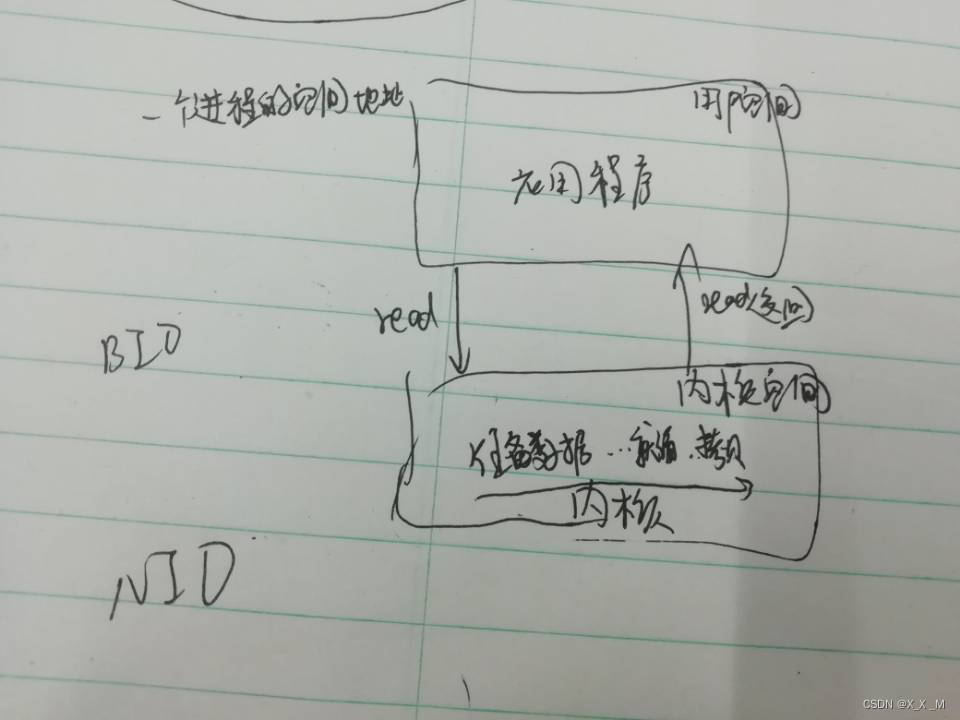 一个进程的空间地址
用户空间
应用程序
read
read(返回)
BIO
内核空间
准备数据...就绪.拷贝
内核
NIO
CSDN @X_X _M